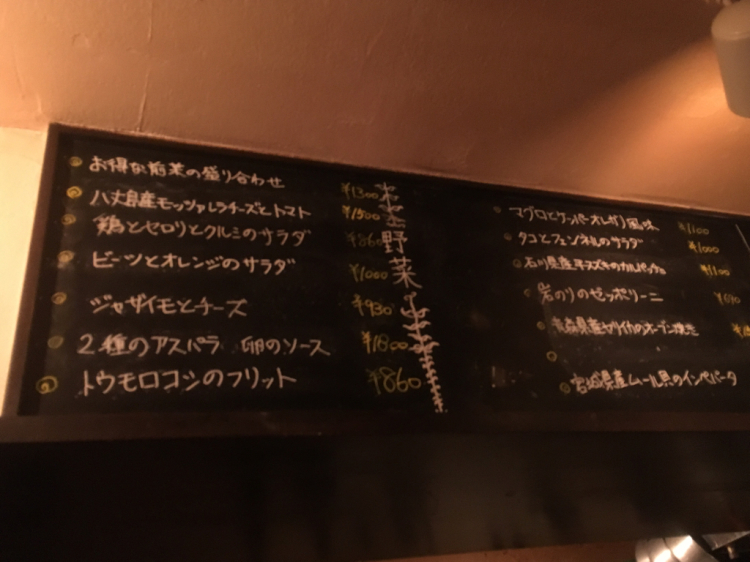 お得な前菜の盛り合わせ ¥1300
八丈島産モッツァレラチーズとトマト ¥1500
鶏とセロリとクルミのサラダ ¥860
ビーツとオレンジのサラダ ¥1000
ジャガイモとチーズ ¥930
2種のアスパラ 卵のソース ¥1300
トウモロコシのフリット ¥860
野菜
マグロとケッパーオレガノ風味 ¥1100
タコとフェンネルのサラダ ¥1000
石川県産 ¥1100
岩のりのゼッポリーニ
青森県産ヤリイカのオーブン焼き
宮城県産ムール貝のインペパータ